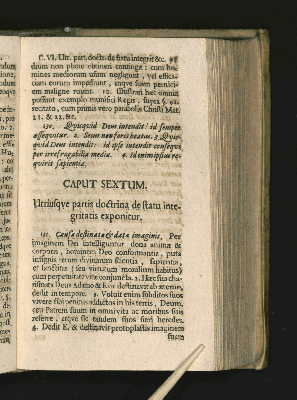 C. VI. Utr. part. doctr. de statu integrit. &c. 98
dium non plane obtineri contingit: cum homines
mediorum usum negligunt, vel efficaciam
eorum impediunt, inque suam perniciem
maligne ruunt. 10. Illustrari hæc omnia
possunt exemplo munifici Regis, supra §. 92.
recitato, cum primis vero parabolis Christi Mat.
21. & 22. &c.
130. Quicquid Deus intendit: id semper
assequitur. 2. Secus non foret beatus. 3. Quicquid
Deus intendit: id ipse intendit consequi
per irrefragabilia media. 4. Id enim ipsum requirit
sapientia.
CAPUT SEXTUM.
Utriusque partis doctrina de statu integritatis
exponitur.
131. Causa destinata & data imaginis. Per
imaginem Dei intelliguntur dona animæ &
corporis, hominem Deo conformantia, puta
insignis rerum divinarum scientia, sapientia,
et sanctitas (seu virtutum moralium habitus)
cum perpetuitate vitæ conjuncta. 2. Hæc sua charismata
Deus Adamo & Evæ destinavit ab æterno,
dedit in tempore. 3. Voluit enim subditos suos
vivere sibi penitus addictos in his terris, Deum,
ceu Patrem suum in omni vita ac moribus suis
referre, atque sic tandem suos fieri heredes.
4. Dedit E. & destinavit protoplastis imaginem
suam